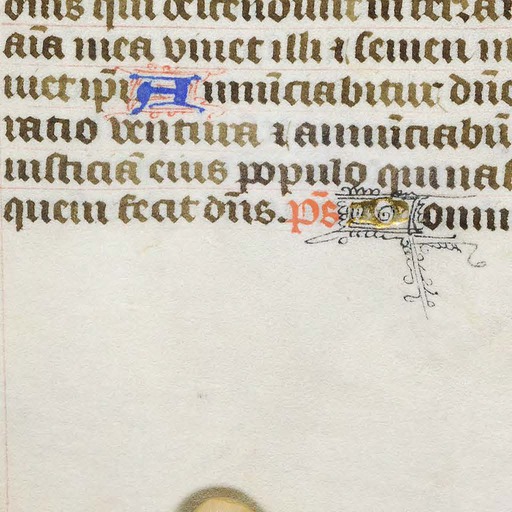 omnes qui descendunt in terram
aīa mea viuet illi ⁊ semen m
uiet ip̄i Annūciabitur dn̄o
ratio ventura ⁊ annūciabū
iusticiā eius populo qui nas
quem fecit dn̄s. p̄s Domin